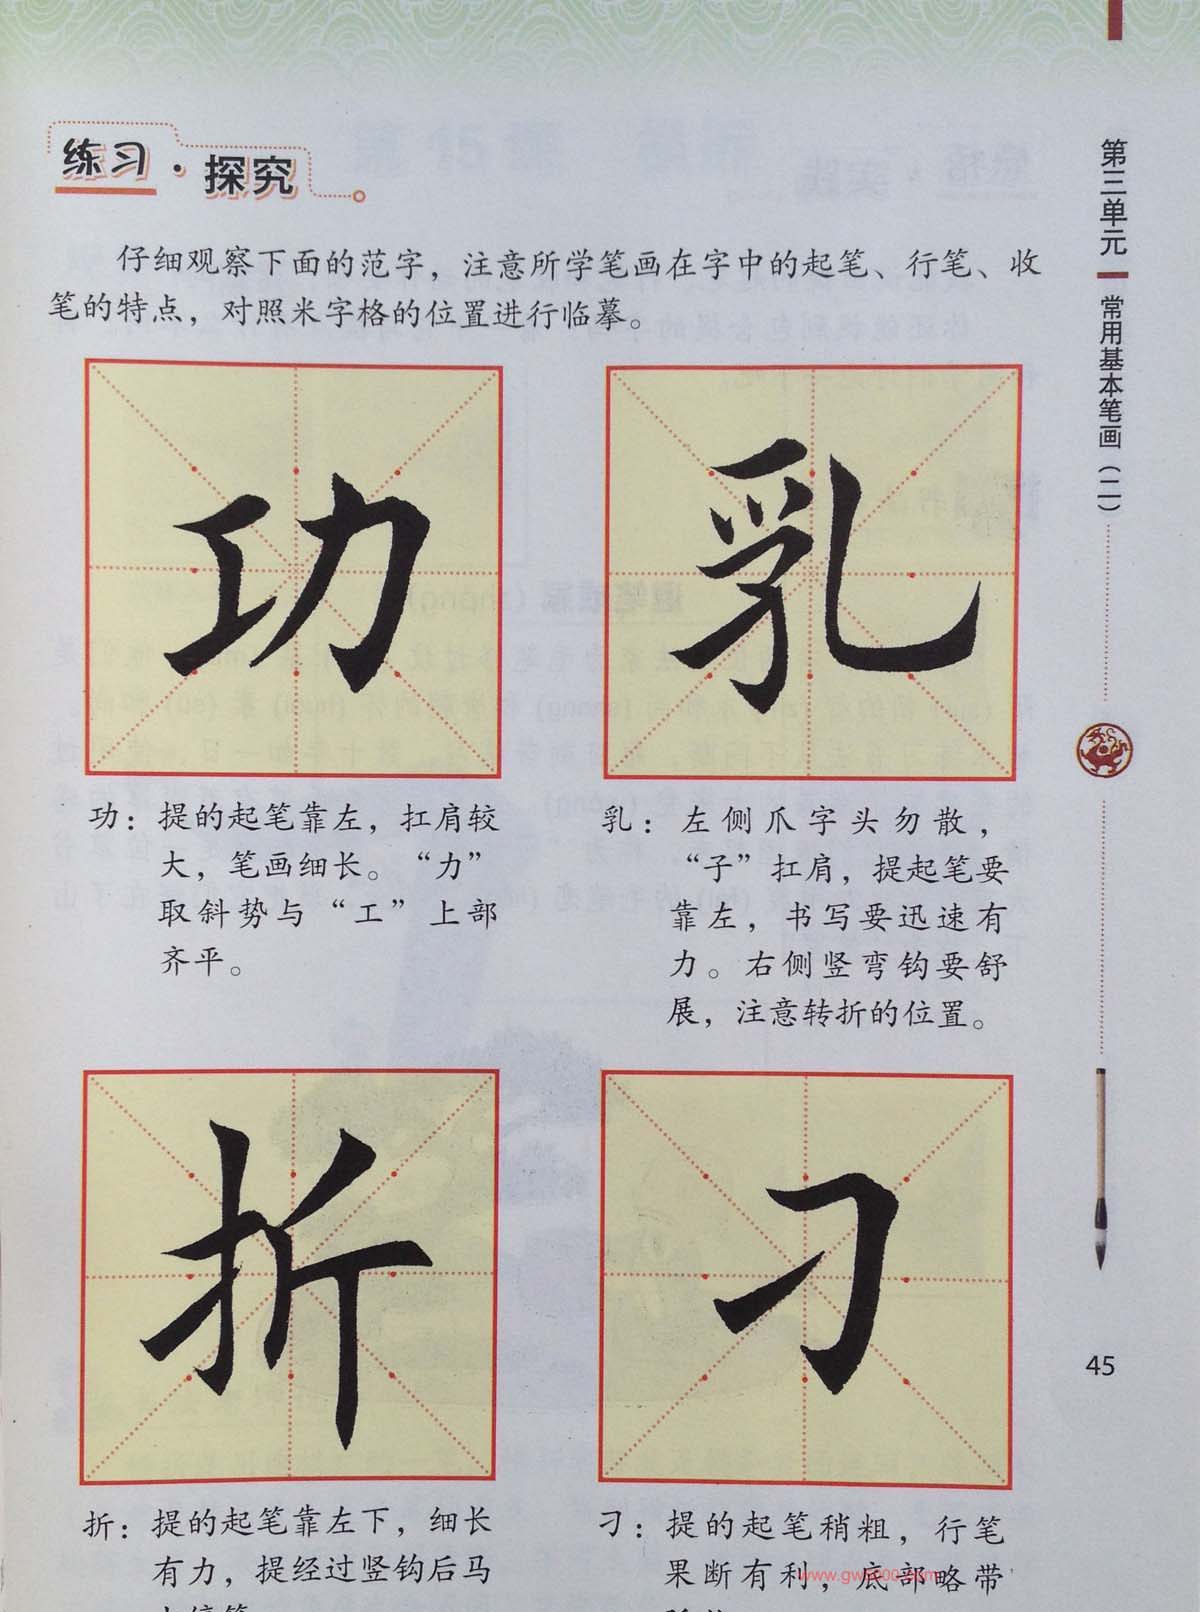 练习·探究
仔细观察下面的范字，注意所学笔画在字中的起笔、行笔、收
笔的特点，对照米字格的位置进行临摹。
功
乳
功：提的起笔靠左，扛肩较
大，笔画细长。“力”
取斜势与“工”上部
齐平。
乳：左侧爪字头勿散，
“子”扛肩，提起笔要
靠左，书写要迅速有
力。右侧竖弯钩要舒
展，注意转折的位置。
折
刁
折：提的起笔靠左下，细长
有力，提经过竖钩后马
刁：提的起笔稍粗，行笔
果断有利，底部略带
第三单元
常用基本笔画（二）
45